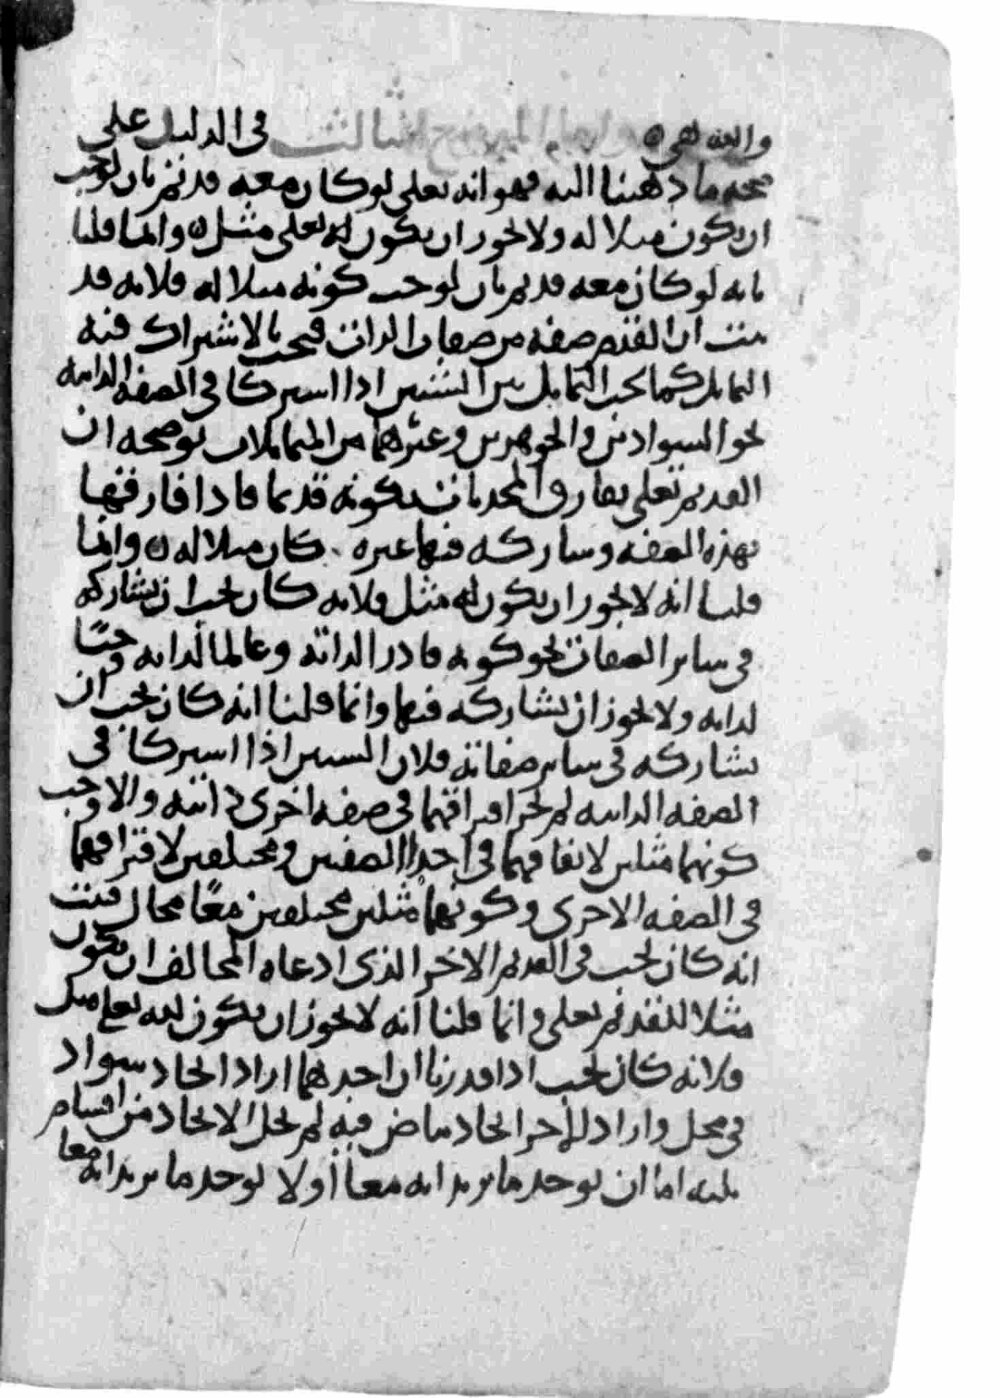 والله الموضع الثالث في الدليل على
صحة ما ذهبنا اليه فهو انه تعلى لو كان معه قديم ثان لوجب
ان يكون مثلا له ولا يجوز ان يكون له تعلى مثل ه وانما قلنا
بانه لو كان معه قديم ثان لوجب كونه مثلا له فلانه قد
ثبت ان القدم صفه من صفات الذات فيجب بالاشتراك فيه
التماثل كما يجب التماثل بين الشيئين اذا اشتركا في الصفه الذاتيه
نحو السوادين والجوهرين وغيرهما من المتماثلات يوضحه ان
القديم تعلى يفارق المحدثات بكونه قديما فاذا فارقها
بهذه الصفه وشاركه فيها غيره كان مثلا له ه وانما
قلنا انه لا يجوز ان يكون له مثل فلانه كان يجب ان يشاركه
في ساير الصفات نحو كونه قادرا لذاته وعالما لذاته وحيا
لذاته ولا يجوز ان يشاركه فيها وانما قلنا انه كان يجب ان
يشاركه في ساير صفاته فلان الشيئين اذا اشتركا في
الصفه الذاتيه لم يجز افتراقهما في صفه اخرى ذاتيه والا وجب
كونهما مثلين لاتفاقهما في احدا الصفتين ومختلفين لافتراقهما
في الصفه الاخرى وكونهما مثلين مختلفين معًا محال فثبت
انه كان يجب في القديم الاخر الذي ادعاه المخالف ان يكون
مثلا للقديم تعلى وانما قلنا انه لا يجوز ان يكون لله تعلى مثل
فلانه كان يجب اذا قدرنا ان احدهما اراد ايجاد سواد
في محل واراد الاخر ايجاد بياض فيه لم يخل الايجاد من اقسام
ثلثه اما ان يوجد ما يريدانه معا او لا يوجد ما يريدانه معا